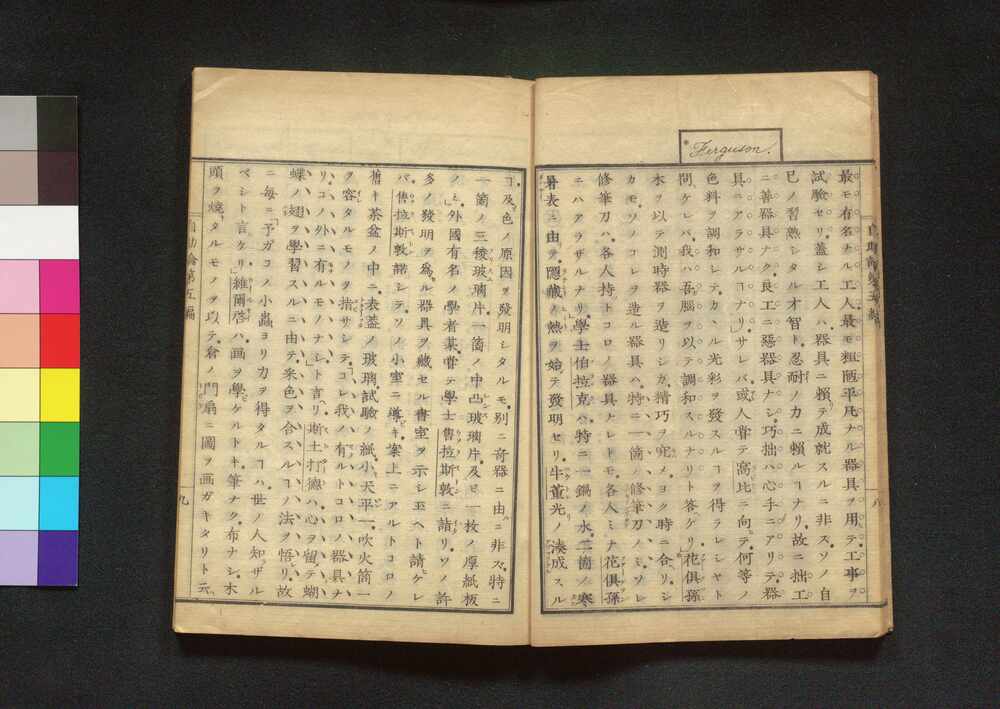 Ferguson.
最モ有名ナル工人。最モ粗陋平凡ナル器具ヲ用テ。工事ヲ
試驗セリ。蓋シ工人ハ。器具ニ頼テ成就スルニ非ズ。ソノ自
已ノ習熟シタル才智ト。忍耐ノ力ニ頼ルヿナリ。故ニ拙工
ニ善器具ナク。良工ニ惡器具ナシ。巧拙ハ心手ニアリテ。器
具ニアラザルヿナリ」サレバ或人甞テ高比ニ向テ。何等ノ
色料ヲ調和シテ。カヽル光彩ヲ發スルヿヲ得ラレシヤト
問ケレバ。我ハ吾腦ヲ以テ調和スルナリト答ケリ」花倶孫
木ヲ以テ測時器ヲ造リシガ。精巧ヲ究メ。ヨク時ニ合リシ
カモ。ソノコレヲ造ル器具ハ。特ニ一箇ノ修筆刀ノミ。ソレ
修筆刀ハ。各人持トコロノ器具ナレトモ。各人ミナ花倶孫
ニハアラザルナリ」學士伯拉克ハ。特ニ一鍋ノ水。二箇ノ寒
暑表ニ由テ。隱藏ノ熱ヲ始テ發明セリ。牛董光ノ湊成スル
八
ヿ及色ノ原因ヲ發明シタルモ。別ニ奇器ニ由ニ非ズ。特ニ
一箇ノ三稜玻璃片。一箇ノ中凸玻璃片。及ビ一枚ノ厚紙板
ノミ」外國有名ノ學者某。甞テ學士售拉斯敦ニ詣リ。ソノ許
多ノ發明ヲ爲ル器具ヲ藏セル書室ヲ示シ玉ヘト請ケレ
バ。售拉斯敦諾シテ。ソノ小室ニ導キ。案上ニアルトコロノ
舊キ茶盆ノ中ニ。表蓋ノ玻璃。試驗ノ紙。小天平一。吹火筒一
ヲ容タルモノヲ指サシテ。コレ我ノ有ルトコロノ器具ナ
リ。コノ外ニ有ルモノナシト言リ」斯土打德ハ。心ヲ留テ蝴
蝶ノ翅ヲ學習スルニ由テ。采色ヲ合スルヿノ法ヲ悟リ。故
ニ毎ニ「予ガコノ小蟲ヨリ力ヲ得タルヿハ。世ノ人知ザル
ベシト言ケリ」維爾啓ハ。画ヲ學ケルトキ。筆ナク。布ナシ。木
頭ヲ燒タルモノヲ以テ。倉ノ門扇ニ圖ヲ画ガキタリト云。
自助論第五編
九